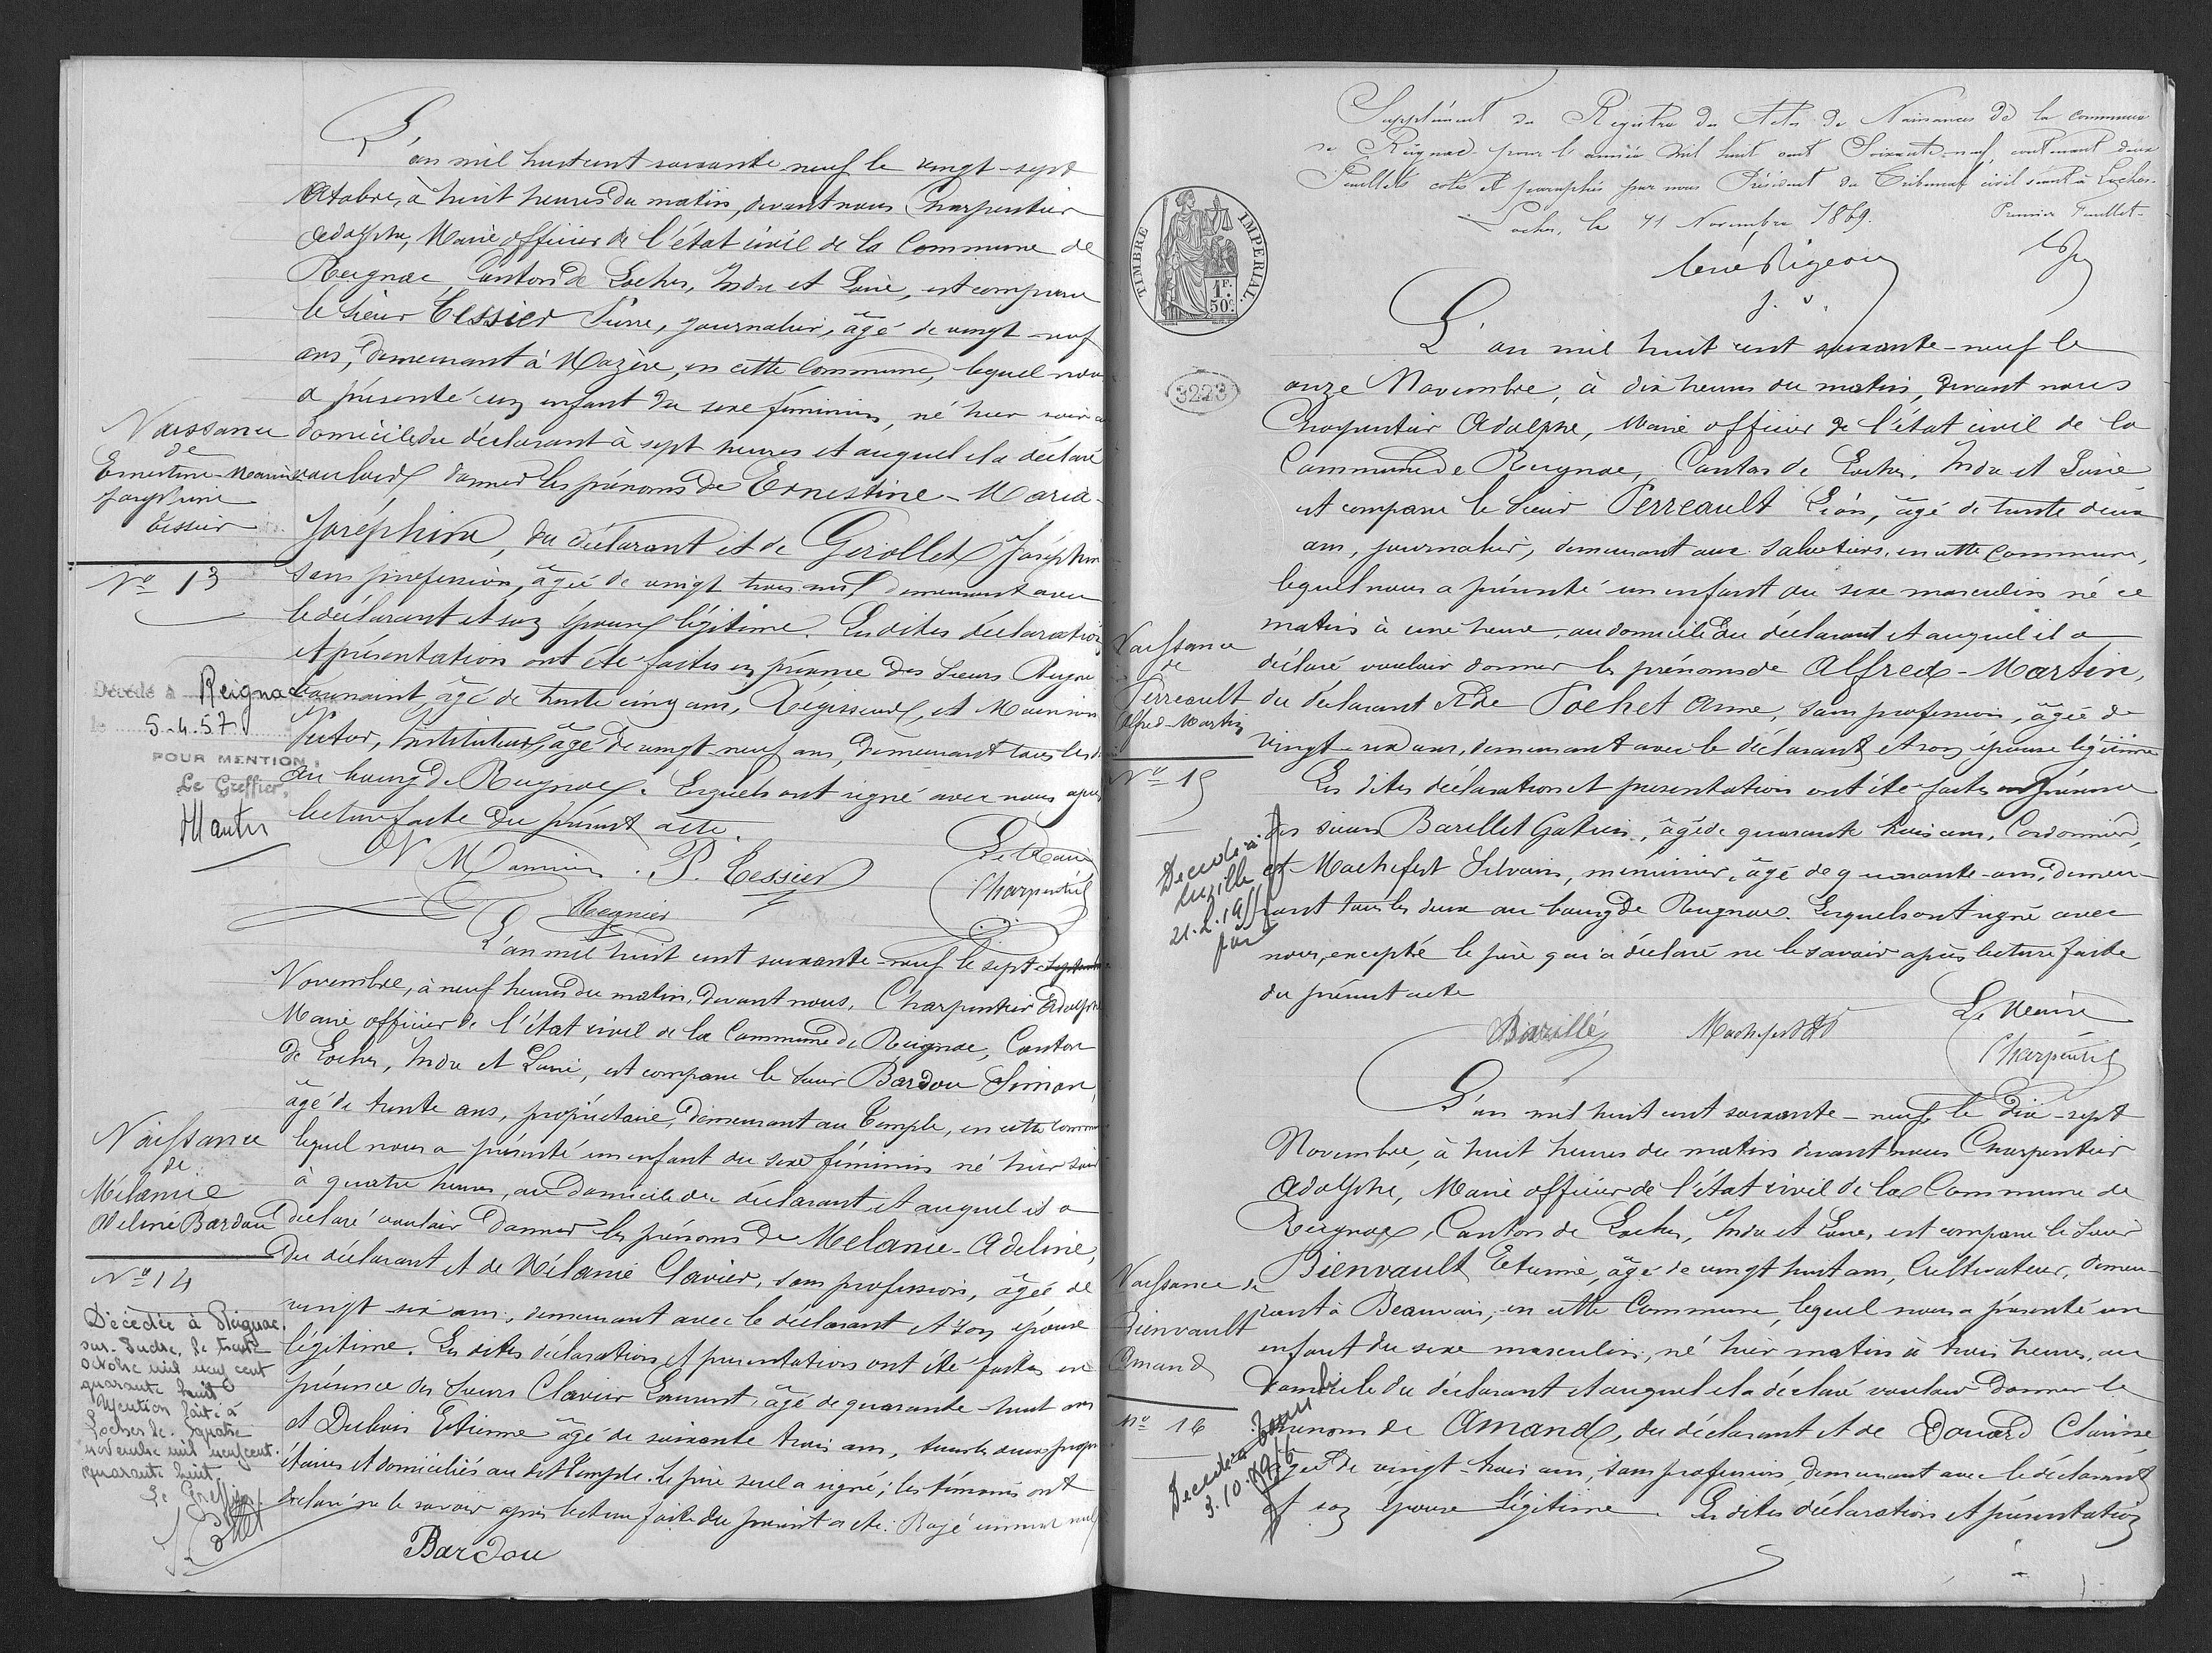 L'an mil huit cent soixante-neuf le vingt-sept
Octobre, à huit heures du matin, devant nous Charpentier
Adolphe, Maire officier de l'état civil de la Commune de
Reignac, Canton de Loches, Indre et Loire, est comparu
le sieur Tessier Pierre, journalier, âgé de vingt-neuf
ans, demeurant à Mazère, en cette commune, lequel nous
a présenté un enfant du sexe féminin, né hier soir au
domicile du déclarant à sept heures et auquel il a déclaré
vouloir donner les prénoms de Ernestine-Maria-
Joséphine, du déclarant et de Girollet Joséphine
sans profession, âgée de vingt trois ans demeurant avec
le déclarant et son épouse légitime. Les dites déclaration
et présentation ont été faites en présence des sieurs
âgé de trente cinq ans, Régisseur, et
Instituteur, âgé de vingt-neuf ans, demeurant tous les
au bourg de Reignac. Lesquels ont signé avec nous après
lecture faite du présent acte.
P. Tessier
Le Maire
Charpentier
Regnier
Naissance
de
Ernestine-Maria
Joséphine
Tessier
N° 13
Décédé à Reignac
le 5-4-57
POUR MENTION :
Le Greffier,
L'an mil huit cent soixante-neuf le sept
Novembre, à neuf heures du matin, devant nous, Charpentier Adolphe
Maire officier de l'état civil de la Commune de Reignac, Canton
de Loches, Indre et Loire, est comparu le sieur Bardou Simon,
âgé de trente ans, propriétaire, demeurant au Temple, en cette commune
lequel nous a présenté un enfant du sexe féminin né hier soir
à quatre heures, au domicile du déclarant et auquel il a
déclaré vouloir donner les prénoms de Mélanie-Adeline,
du déclarant et de Mélanie Clavier, sans profession, âgée de
vingt six ans, demeurant avec le déclarant et son épouse
légitime. Les dites déclaration et présentation ont été faites en
présence des sieurs Clavier Laurent, âgé de quarante-huit ans
et Dubois Etienne âgé de soixante trois ans, tous les deux propri
étaires et domiciliés au dit Temple. Le père seul a signé; les témoins ont
déclaré ne le savoir après lecture faite du présent acte. Rayé un mot nul
Bardou
Naissance
de
Mélanie
Adeline Bardou
N° 14
Décédée à Reignac
sur-Indre, le trente
octobre mil neuf cent
quarante huit
Mention faite à
Loches le quatre
novembre mil neuf cent
quarante huit
Le Greffier
Supplément du Registre des Actes de Naissances de la commune
de Reignac pour l'année mil huit cent Soixante-neuf, contenant deux
Feuillets cotés et paraphés par nous Président du Tribunal civil séant à Loches.
Loches, le 11 Novembre 1869.
Premier Feuillet.
TIMBRE IMPERIAL
1F.
50c.
3223
L'an mil huit cent soixante-neuf le
onze Novembre, à dix heures du matin, devant nous
Charpentier Adolphe, Maire officier de l'état civil de la
Commune de Reignac, Canton de Loches, Indre et Loire
est comparu le sieur Perreault Léon, âgé de trente deux
ans, journalier, demeurant aux, en cette commune,
lequel nous a présenté un enfant du sexe masculin né ce
matin à une heure, au domicile du déclarant et auquel il a
déclaré vouloir donner les prénoms de Alfred-Martin,
du déclarant et de Pochet Anne, sans profession, âgée de
vingt-six ans, demeurant avec le déclarant et son épouse légitime
Les dites déclaration et présentation ont été faites en présence
des sieurs Barillet Gatien, âgé de quarante trois ans, Cordonnier,
et Machefert Silvain, menuisier, âgé de quarante-ans, demeu-
rant tous les deux au bourg de Reignac. Lesquels ont signé avec
nous, excepté le père qui a déclaré ne le savoir après lecture faite
du présent acte
Barillé
Machefert
Le Maire
Charpentier
Naissance
de
Perreault
Alfred-Martin
N° 15
Décédé à
Luzillé
L'an mil huit cent soixante-neuf le dix-sept
Novembre, à huit heures du matin devant nous Charpentier
Adolphe, Maire officier de l'état civil de la Commune de
Reignac, Canton de Loches, Indre et Loire, est comparu le sieur
Bienvault Etienne, âgé de vingt huit ans, Cultivateur, demeu-
rant à Beauvais, en cette Commune, lequel nous a présenté un
enfant du sexe masculin, né hier matin à trois heures, au
domicile du déclarant et auquel il a déclaré vouloir donner le
prénom de Amand, du déclarant et de Douard Clarisse
âgée de vingt-trois ans, sans profession, demeurant avec le déclarant
et son épouse légitime. Les dites déclaration et présentation
Naissance de
Bienvault
Amand
N° 16
Décédé à Tours